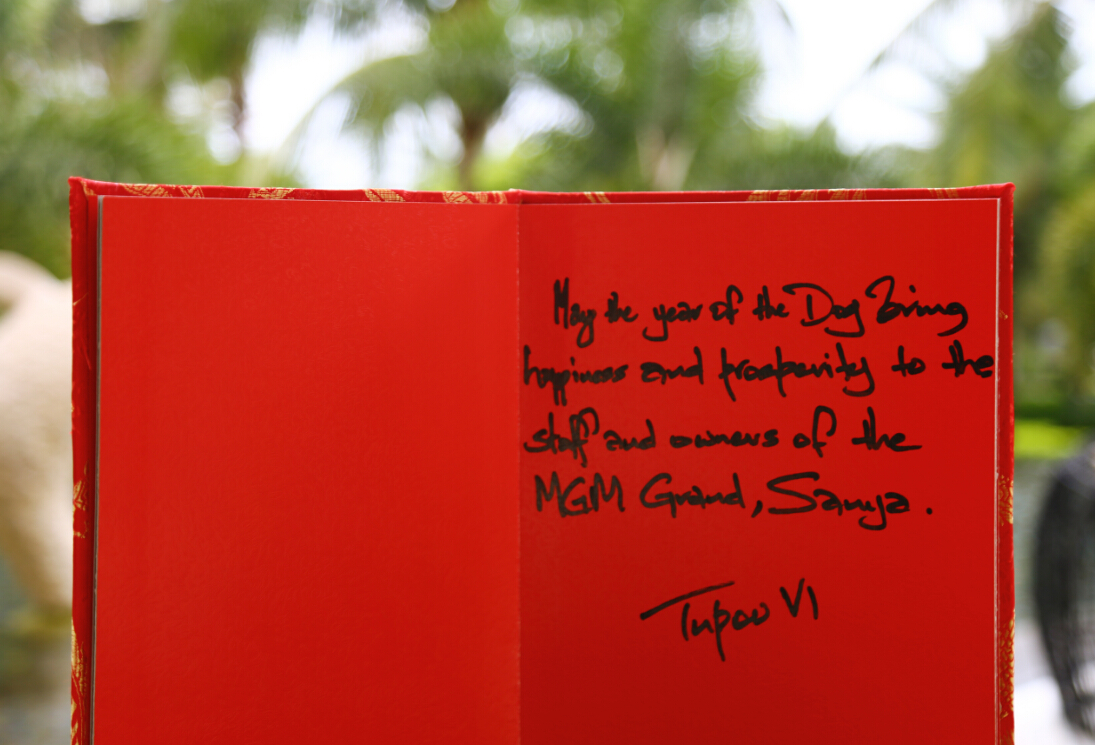 May the year of the Dog bring
happiness and prosperity to the
staff and owners of the
MGM Grand, Sanya.
Tupou VI